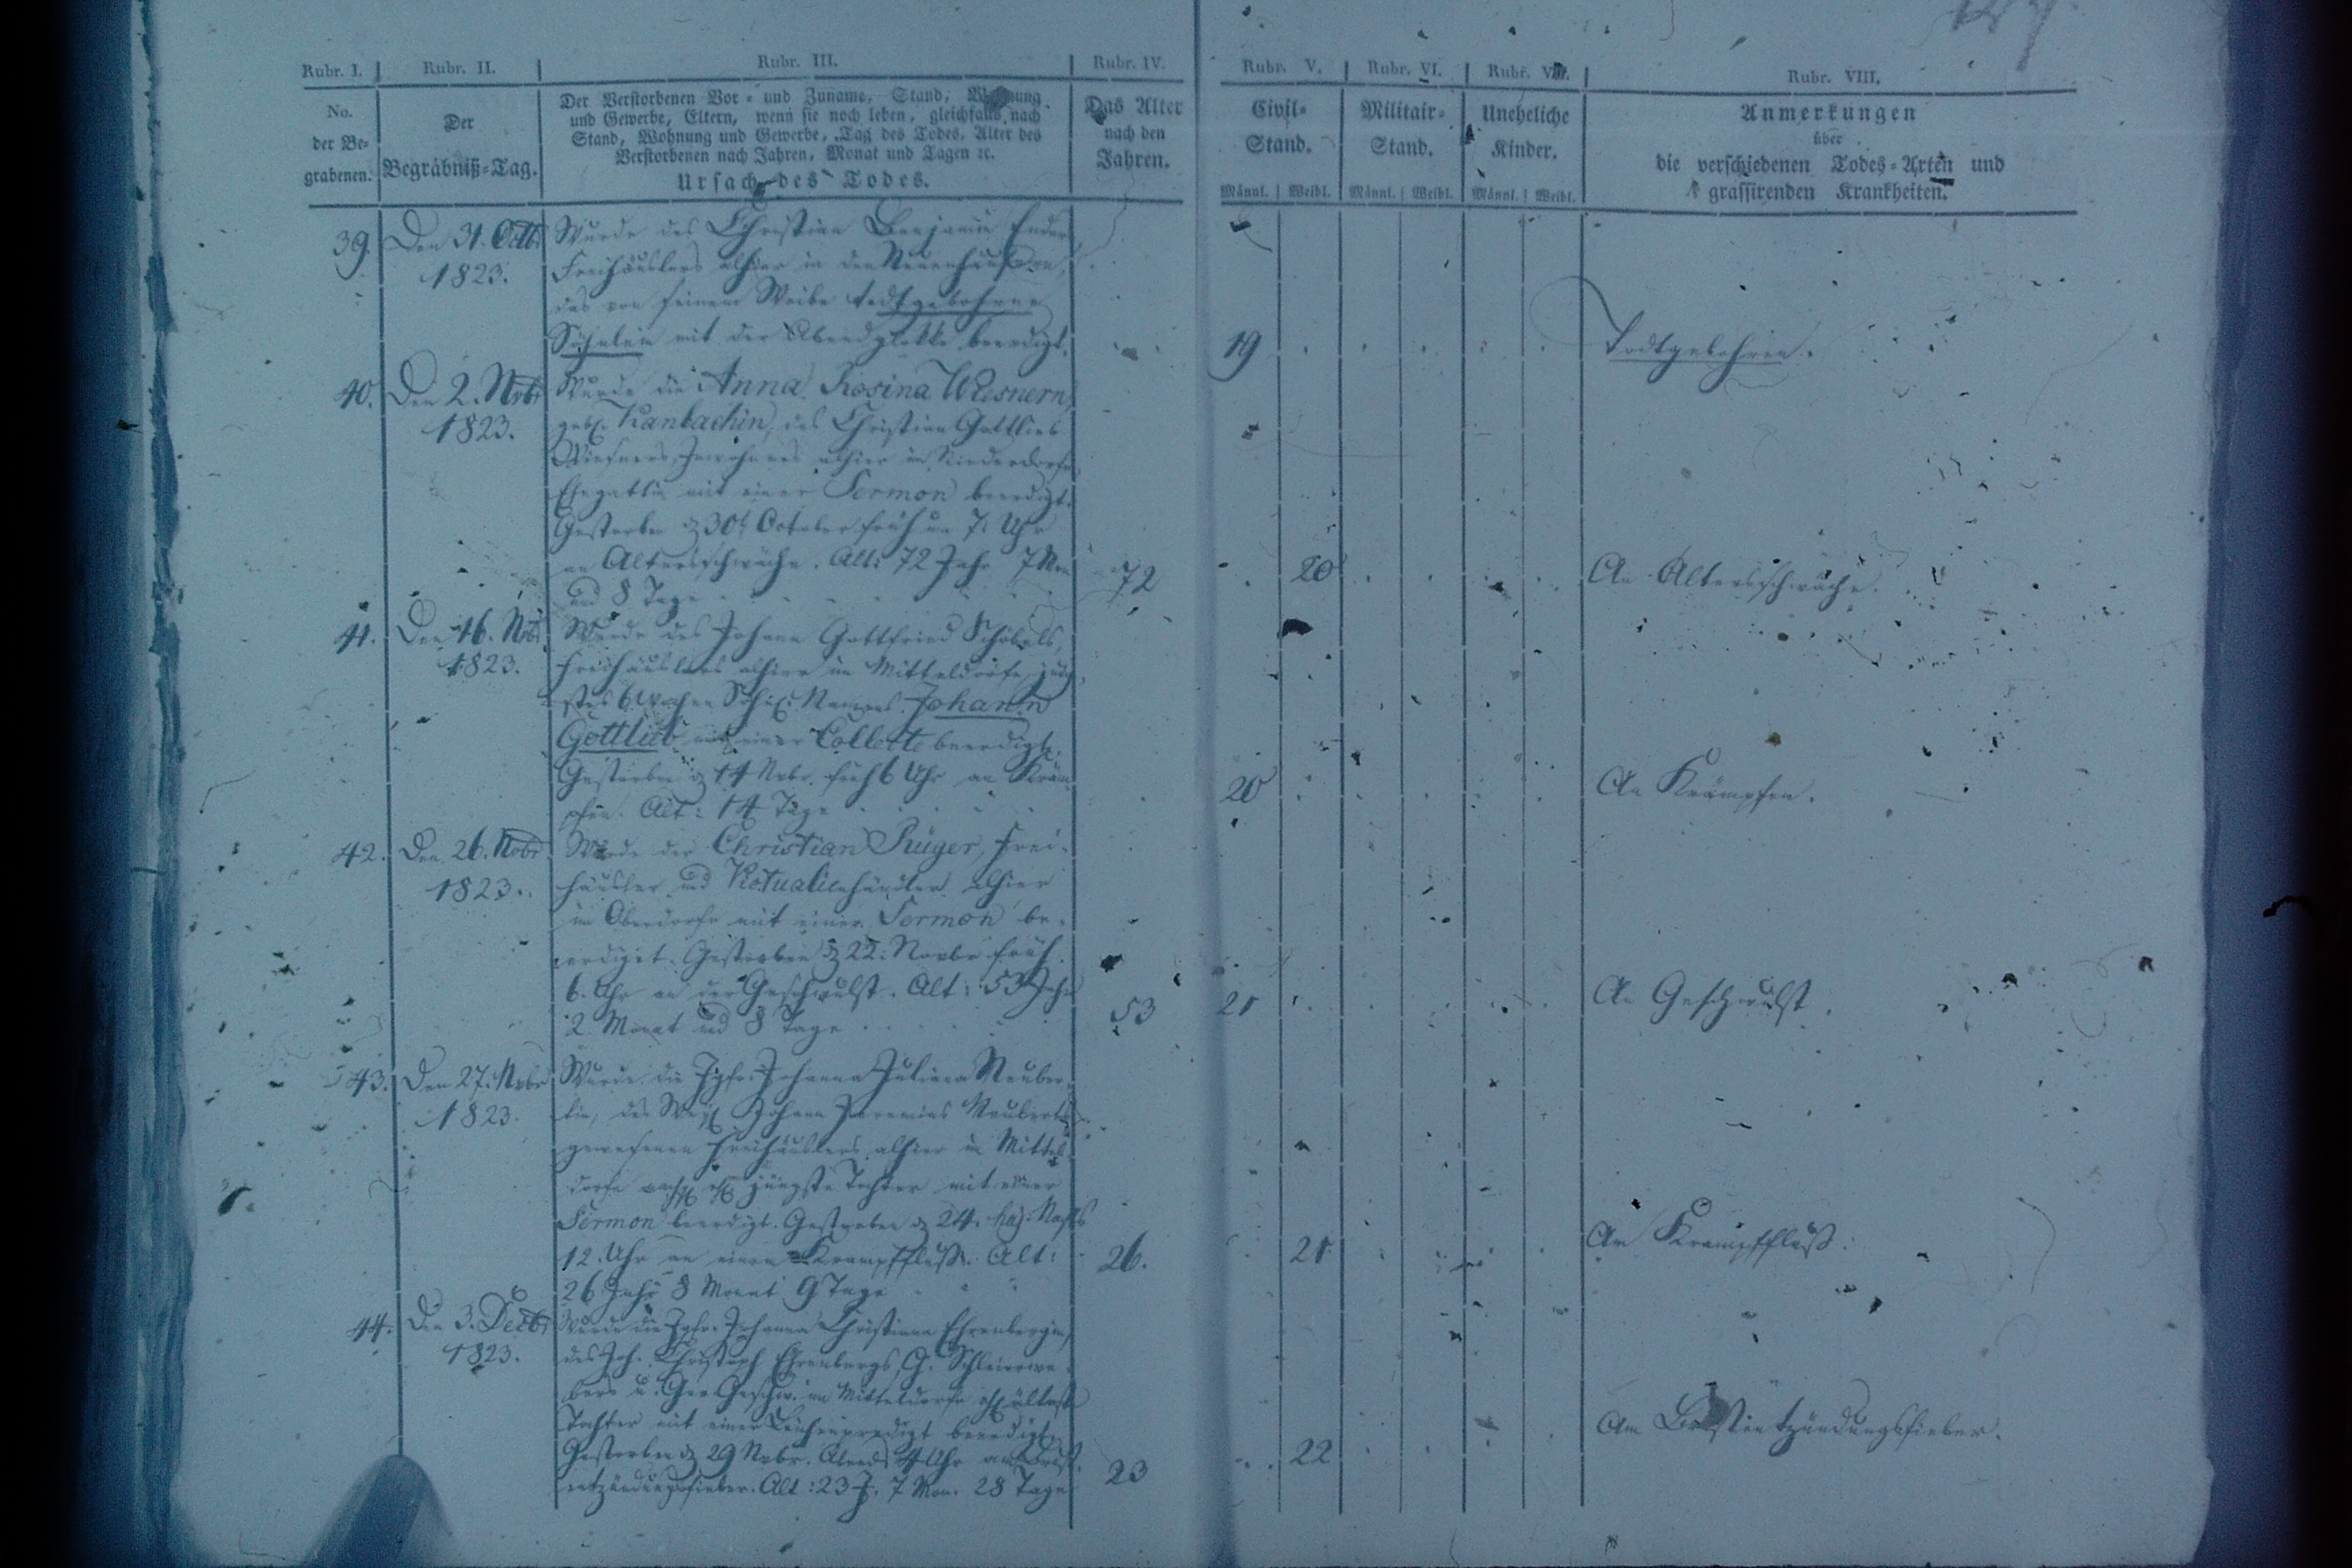 Rubr. I. Rubr. II. Rubr. III. Rubr. IV. Rubr. V. Rubr. VI. Rubr. VII. Rubr. VIII.
No. der Be- grabenen.
Der Begräbniß-Tag.
Der Verstorbenen Vor- und Zuname, Stand, Wohnung
und Gewerbe, Eltern, wenn sie noch leben, gleichfalls nach
Stand, Wohnung und Gewerbe, Tag des Todes, Alter des
Verstorbenen nach Jahren, Monat und Tagen ꝛc.
Ursach des Todes.
Das Alter nach den Jahren.
Civil- Stand.
Militair- Stand.
Uneheliche Kinder.
Anmerkungen
über
die verschiedenen Todes-Arten und
grassirenden Krankheiten.
Männl. Weibl. Männl. Weibl. Männl. Weibl.
39. Den 31. Octbr Wurde des Christian Benjamin Ender
1823. Freihäuslers alhier in den Neuenhäusern,
das von seinem Weibe todtgebohrne
Söhnlein mit der Abendglokke beerdigt. 19 Todtgebohren.
40. Den 2. Nvbr Wurde die Anna Rosina Wiesnern,
1823. geb. Kanbachin, des Christian Gottlieb
Wiesners, Inwohners alhier im Niederdorfe
Ehegattin mit einer Sermon beerdigt.
Gestorben d 30t October früh um 7. Uhr
an Altersschwäche. Alt: 72 Jahr 7 Mon 72 20 An Altersschwäche.
und 8 Tage
41. Den 16. Nvbr Wurde des Johann Gottfried Schöbels,
1823. Freihäuslers alhier im Mitteldorfe,
Namens Johann
Gottlieb mit einer Collecte beerdigt.
Gestorben d 14 Nvbr. früh 6 Uhr an Kräm- 20 An Krämpfen.
pfen. Alt: 14 Tage
42. Den 26. Nvbr Wurde der Christian Rüger, Frei-
1823. häusler und Victualienhändler alhier
im Oberdorfe mit einer Sermon be-
erdiget. Gestorben d 22. Novbr früh
6. Uhr an der Geschwulst. Alt: 53 Jahr 53 21 An Geschwulst.
2. Monat und 8 Tage
43. Den 27. Nvbr Wurde die Jgfr. Johanna Juliana Neuber-
1823. tin, des Johann Jeremias Neuberts
gewesenen Freihäuslers alhier in Mittel-
dorfe jüngste Tochter mit einer
Sermon beerdigt. Gestorben d 24. huj. Nachts
12. Uhr an einem Krampffluß. Alt: 26. 21 Am Krampffluß.
26 Jahr 8 Monat 9 Tage
44. Den 3. Decbr Wurde die Jgfr. Johanna Christiana Ehrenbergin,
1823. des Joh. Christoph Ehrenbergs, G. Schleierwe-
bers u. Ger. Geschw. im Mitteldorfe älteste
Tochter mit einer Leichenpredigt beerdigt.
Gestorben d 29 Nvbr. Abends 4 Uhr am Brust- 22 Am Brustentzündungsfieber.
entzündungsfieber. Alt: 23 J. 7 Mon. 28 Tage 23